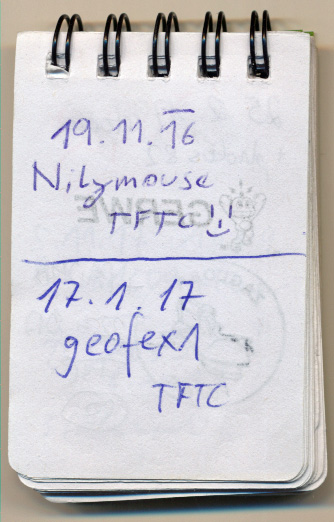 19.11.16
Nilymouse
TFTC
17.1.17
geofex1
TFTC